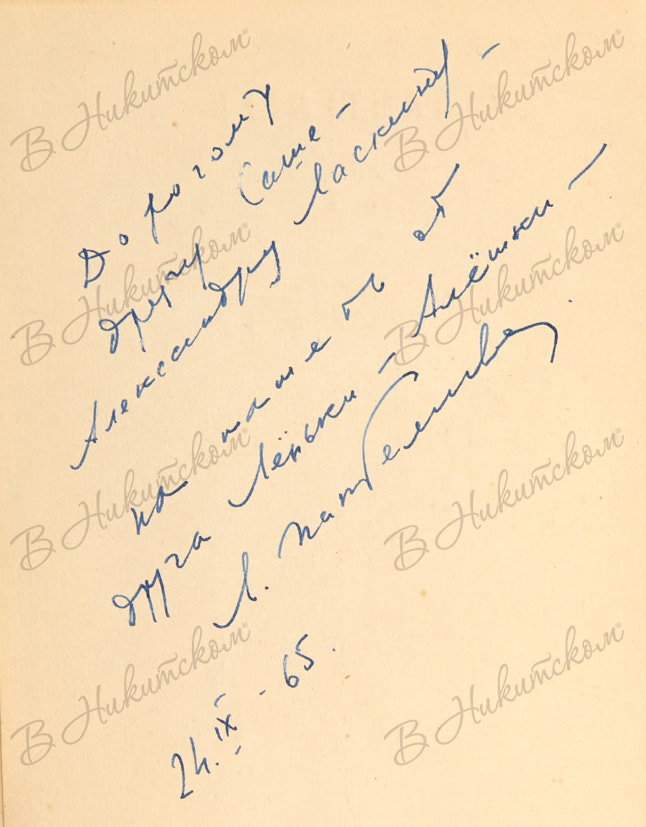 Дорогому
другу Саше –
Александру Ласкину –
на память от
друга Лёньки – Алёшки –
Л. Пантелеева.
24.IX – 65.
В Никитском
В Никитском
В Никитском
В Никитском
В Никитском
В Никитском
В Никитском
В Никитском